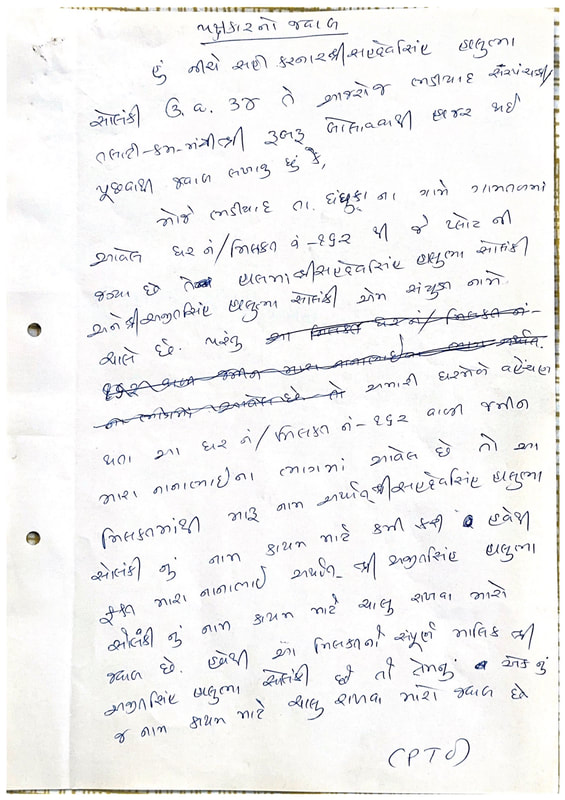 પક્ષકારનો જવાબ
હું નીચે સહી કરનાર શ્રી સહદેવસિંહ હાલુભા
સોલંકી ઉ.વ. ૩૪ તે આજરોજ ભડીયાદ સરપંચશ્રી/
તલાટી-કમ-મંત્રીશ્રી રૂબરૂ બોલાવવાથી હાજર થઈ
પૂછવાથી જવાબ લખાવું છું કે,
મોજે ભડીયાદ તા. ધંધુકા ના ગામે ગામતળમાં
આવેલ ઘર નં/મિલકત નં-૧૬૨ થી જે પ્લોટ ની
જગ્યા છે તે હાલમાં શ્રી સહદેવસિંહ હાલુભા સોલંકી
અને શ્રી અજીતસિંહ હાલુભા સોલંકી એમ સંયુક્ત નામે
ચાલે છે. પરંતુ આ મિલકત ઘર નં/મિલકત નં-
૧૬૨ વાળી જમીન મારા નાનાભાઈ
અમારી ઘરમેળે વહેંચણ
થતા આ ઘર નં/મિલકત નં-૧૬૨ વાળી જમીન
મારા નાનાભાઈના ભાગમાં આવેલ છે તો આ
મિલકતમાંથી મારૂ નામ અર્થાત્ શ્રી સહદેવસિંહ હાલુભા
સોલંકી નું નામ કાયમ માટે કમી કરી હવેથી
ફક્ત મારા નાનાભાઈ અર્થાત્ શ્રી અજીતસિંહ હાલુભા
સોલંકી નું નામ કાયમ માટે ચાલુ રાખવા મારો
જવાબ છે. હવેથી આ મિલકતનો સંપૂર્ણ માલિક શ્રી
અજીતસિંહ હાલુભા સોલંકી છે તો તેમનું એક નું
જ નામ કાયમ માટે ચાલુ રાખવા મારો જવાબ છે
(PTO)